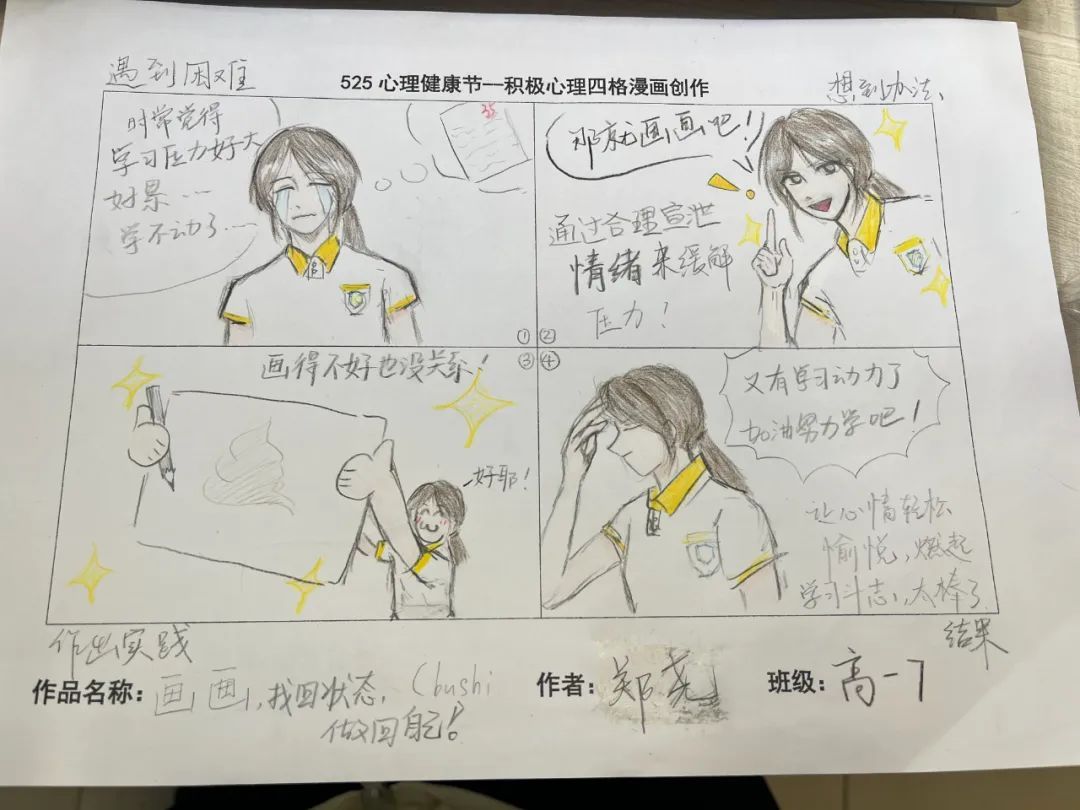 遇到困难
525 心理健康节—积极心理四格漫画创作
想到办法、
时常觉得
学习压力好大
好累……
学不动了……
35
①
那就画画吧！
通过合理宣泄
情绪来缓解
压力！
②
画得不好也没关系！
③
好耶！
④
又有学习动力了
加油努力学吧！
让心情轻松
愉悦，燃起
学习斗志，太棒了
作出实践
结果
作品名称：画画，找回状态，（bushi
做回自己！
作者：郑尧
班级：高一7